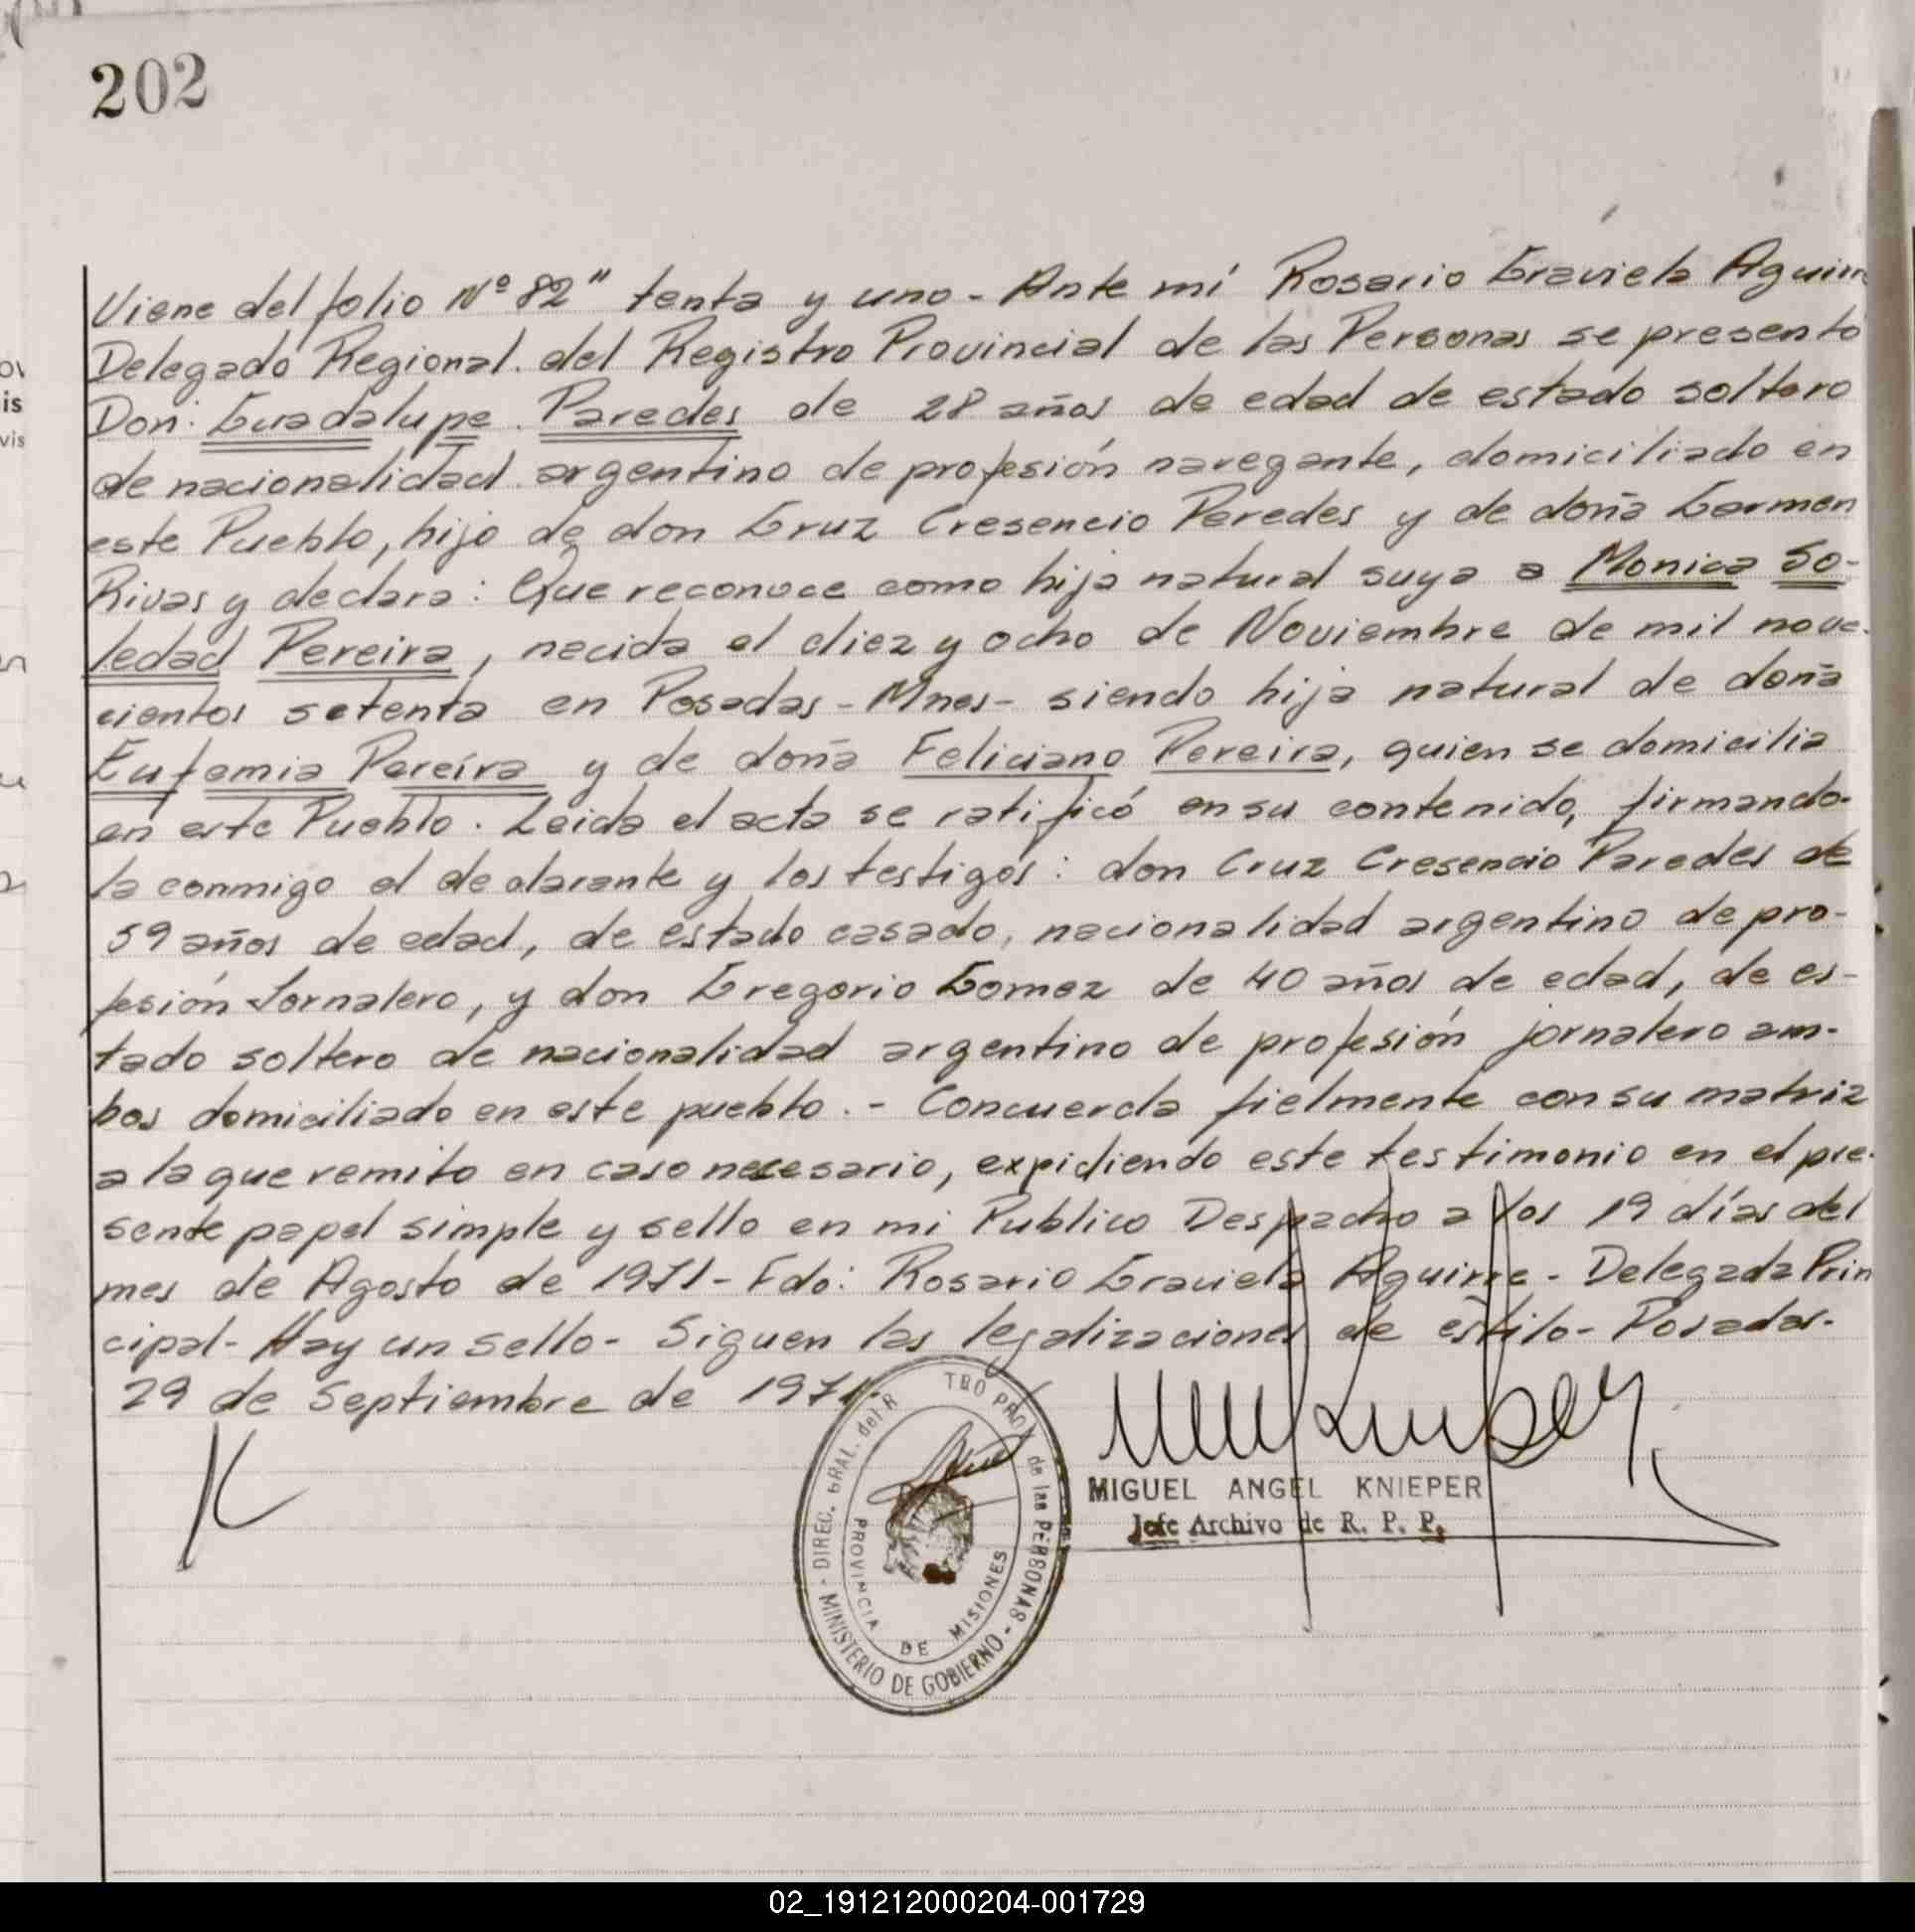 202
Viene del folio Nº 82" tenta y uno - Ante mí Rosario Graviela Aguirre
Delegado Regional. del Registro Provincial de las Personas se presentó
Don: Guadalupe. Paredes de 28 años de edad de estado soltero
de nacionalidad argentino de profesión navegante, domiciliado en
este Pueblo, hijo de don Cruz Cresencio Paredes y de doña Carmen
Rivas y declara: Que reconoce como hija natural suya a Monica So-
ledad Pereira, nacida el diez y ocho de Noviembre de mil nove-
cientos setenta en Posadas - Mnes - siendo hija natural de doña
Eufemia Pereira y de doña Feliciano Pereira, quien se domicilia
en este Pueblo. Leida el acta se ratificó en su contenido, firmando-
la conmigo el dealarante y los testigos: don Cruz Cresencio Paredes de
59 años de edad, de estado casado, nacionalidad argentino de pro-
fesión Jornalero, y don Gregorio Gomez de 40 años de edad, de es-
tado soltero de nacionalidad argentino de profesión jornalero am-
bos domiciliado en este pueblo. - Concuerda fielmente con su matriz
a la que remito en caso necesario, expidiendo este testimonio en el pre-
sente papel simple y sello en mi Publico Despacho a los 19 días del
mes de Agosto de 1971 - Fdo: Rosario Graviela Aguirre - Delegada Prin
cipal - Hay un sello - Siguen las legalizaciones de estilo - Posadas -
29 de Septiembre de 1971.
K
DIREC. GRAL. del R TRO PRO de las PERSONAS - MINISTERIO DE GOBIERNO -
PROVINCIA DE MISIONES
MIGUEL ANGEL KNIEPER
Jefe Archivo de R. P. P.
02_191212000204-001729